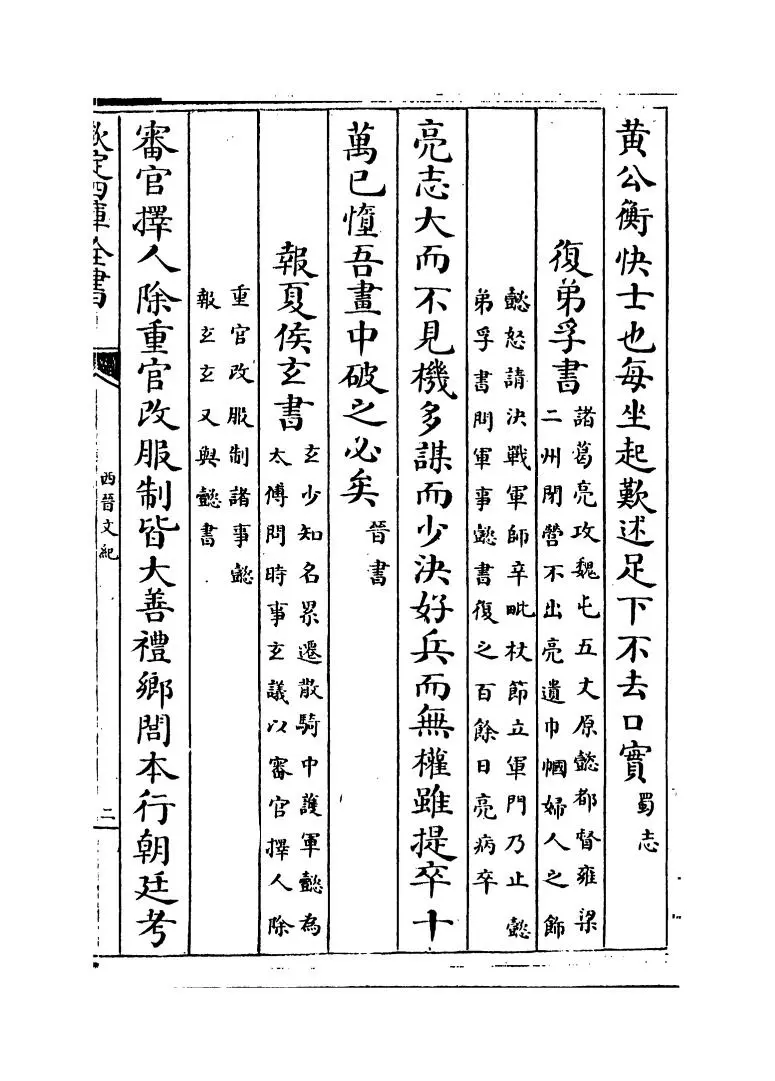 黄公衡快士也每坐起歎述足下不去口實蜀志
復弟孚書諸葛亮攻魏屯五丈原懿都督雍梁
二州閉營不出亮遺巾幗婦人之飾
懿怒請決戰軍師辛毗杖節立軍門乃止懿
弟孚書問軍事懿書復之百餘日亮病卒
亮志大而不見機多謀而少決好兵而無權雖提卒十
萬已墮吾畫中破之必矣晉書
報夏侯玄書玄少知名累遷散騎中護軍懿為
太傅問時事玄議以審官擇人除
重官改服制諸事懿
報玄玄又與懿書
審官擇人除重官改服制皆大善禮鄉閭本行朝廷考
欽定四庫全書
西晉文紀
二